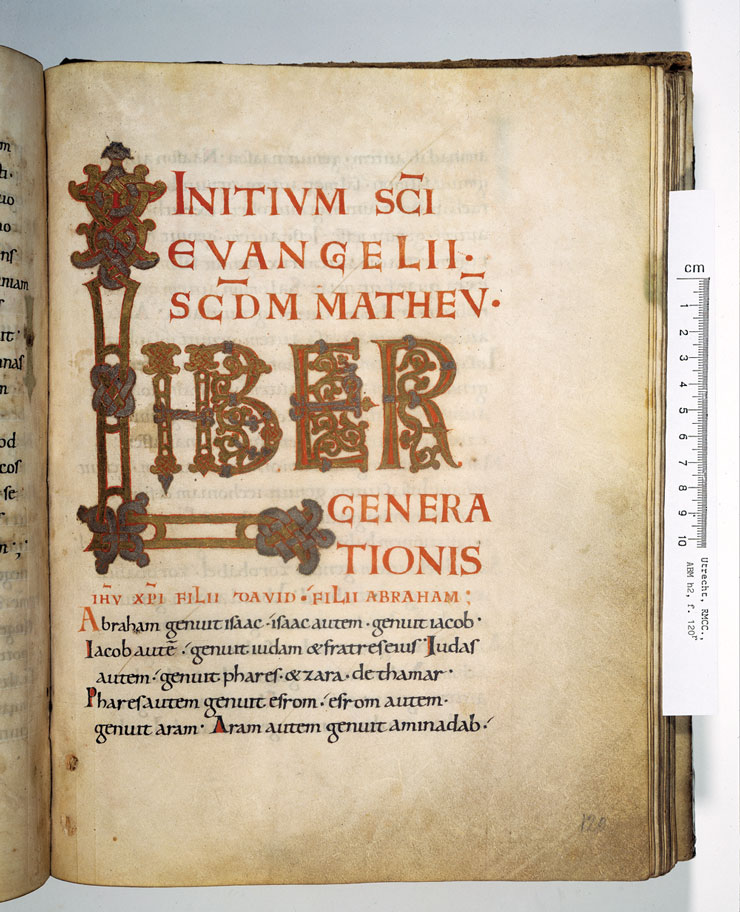 INITIVM SC̄I
EVANGELII·
SCD̄M MATHEV̄·
LIBER
GENERA
TIONIS
IH̄V XP̄I FILII DAVID·FILII ABRAHAM:
Abraham genuit isaac·isaac autem·genuit iacob·
Iacob autē·genuit iudam & fratres eius Iudas
autem·genuit phares·& zara·de thamar·
Phares autem genuit esrom·esrom autem·
genuit aram·Aram autem genuit aminadab·
120
cm
1
2
3
4
5
6
7
8
9
10
Utrecht, RMCC.,
ABM h2, f. 120r